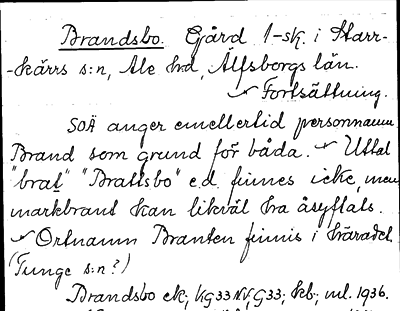 Brandsbo. Gård 1-sk. i Starr-
-kärrs s:n, Ale hd, Älfsborgs län.
Fortsättning.
SOÄ anger emellertid personnamn
Brand som grund för båda. Uttal
"brat" "Brattsbo" e.d. finnes icke, men
markbrant kan likväl ha åsyftats.
Ortnamn Branten finnis i häradet
(Tunge s:n?)
Brandsbo ek; VG33NV, G33; kb; ml. 1936.